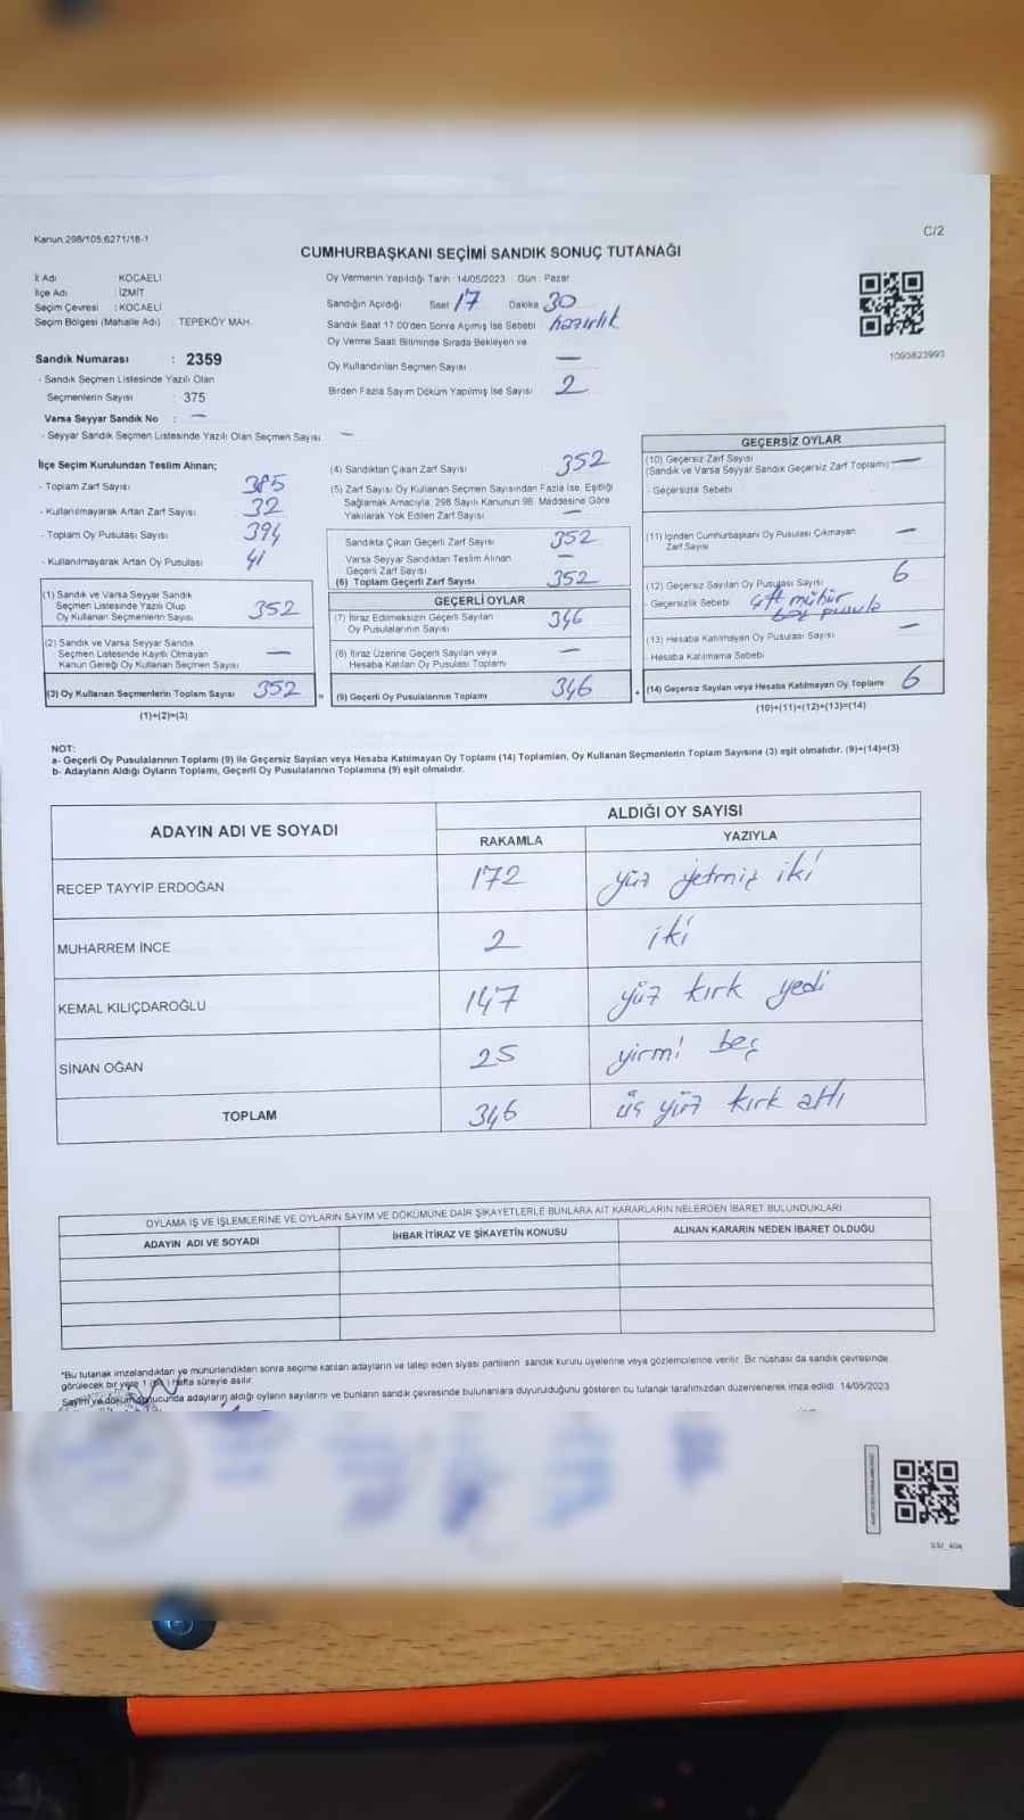 Kanun:298/105,6271/18-1
C/2
CUMHURBAŞKANI SEÇİMİ SANDIK SONUÇ TUTANAĞI
İl Adı : KOCAELİ
İlçe Adı : İZMİT
Seçim Çevresi : KOCAELİ
Seçim Bölgesi (Mahalle Adı) : TEPEKÖY MAH.
Sandık Numarası : 2359
- Sandık Seçmen Listesinde Yazılı Olan
Seçmenlerin Sayısı : 375
Varsa Seyyar Sandık No : —
- Seyyar Sandık Seçmen Listesinde Yazılı Olan Seçmen Sayısı —
Oy Vermenin Yapıldığı Tarih : 14/05/2023 Gün : Pazar
Sandığın Açıldığı Saat 17 Dakika 30
Sandık Saat 17.00'den Sonra Açılmış İse Sebebi hazırlık
Oy Verme Saati Bitiminde Sırada Bekleyen ve
Oy Kullandırılan Seçmen Sayısı —
Birden Fazla Sayım Döküm Yapılmış İse Sayısı 2
1095823993
İlçe Seçim Kurulundan Teslim Alınan;
- Toplam Zarf Sayısı 385
- Kullanılmayarak Artan Zarf Sayısı 32
- Toplam Oy Pusulası Sayısı 394
- Kullanılmayarak Artan Oy Pusulası 41
(1) Sandık ve Varsa Seyyar Sandık
Seçmen Listesinde Yazılı Olup
Oy Kullanan Seçmenlerin Sayısı 352
(2) Sandık ve Varsa Seyyar Sandık
Seçmen Listesinde Kayıtlı Olmayan
Kanun Gereği Oy Kullanan Seçmen Sayısı —
(3) Oy Kullanan Seçmenlerin Toplam Sayısı 352
(1)+(2)=(3)
(4) Sandıktan Çıkan Zarf Sayısı 352
(5) Zarf Sayısı Oy Kullanan Seçmen Sayısından Fazla İse, Eşitliği
Sağlamak Amacıyla, 298 Sayılı Kanunun 98. Maddesine Göre
Yakılarak Yok Edilen Zarf Sayısı —
Sandıkta Çıkan Geçerli Zarf Sayısı 352
Varsa Seyyar Sandıktan Teslim Alınan
Geçerli Zarf Sayısı —
(6) Toplam Geçerli Zarf Sayısı 352
GEÇERLİ OYLAR
(7) İtiraz Edilmeksizin Geçerli Sayılan
Oy Pusulalarının Sayısı 346
(8) İtiraz Üzerine Geçerli Sayılan veya
Hesaba Katılan Oy Pusulası Toplamı —
= (9) Geçerli Oy Pusulalarının Toplamı 346
GEÇERSİZ OYLAR
(10) Geçersiz Zarf Sayısı
(Sandık ve Varsa Seyyar Sandık Geçersiz Zarf Toplamı) —
- Geçersizlik Sebebi
(11) İçinden Cumhurbaşkanı Oy Pusulası Çıkmayan
Zarf Sayısı —
(12) Geçersiz Sayılan Oy Pusulası Sayısı 6
- Geçersizlik Sebebi çift mühür
boş pusula
(13) Hesaba Katılmayan Oy Pusulası Sayısı —
- Hesaba Katılmama Sebebi
+ (14) Geçersiz Sayılan veya Hesaba Katılmayan Oy Toplamı 6
(10)+(11)+(12)+(13)=(14)
NOT:
a- Geçerli Oy Pusulalarının Toplamı (9) ile Geçersiz Sayılan veya Hesaba Katılmayan Oy Toplamı (14) Toplamları, Oy Kullanan Seçmenlerin Toplam Sayısına (3) eşit olmalıdır. (9)+(14)=(3)
b- Adayların Aldığı Oyların Toplamı, Geçerli Oy Pusulalarının Toplamına (9) eşit olmalıdır.
ADAYIN ADI VE SOYADI ALDIĞI OY SAYISI
RAKAMLA YAZIYLA
RECEP TAYYİP ERDOĞAN 172 yüz yetmiş iki
MUHARREM İNCE 2 iki
KEMAL KILIÇDAROĞLU 147 yüz kırk yedi
SİNAN OĞAN 25 yirmi beş
TOPLAM 346 üç yüz kırk altı
OYLAMA İŞ VE İŞLEMLERİNE VE OYLARIN SAYIM VE DÖKÜMÜNE DAİR ŞİKAYETLERLE BUNLARA AİT KARARLARIN NELERDEN İBARET BULUNDUKLARI
ADAYIN ADI VE SOYADI İHBAR İTİRAZ VE ŞİKAYETİN KONUSU ALINAN KARARIN NEDEN İBARET OLDUĞU
*Bu tutanak imzalandıktan ve mühürlendikten sonra seçime katılan adayların ve talep eden siyasi partilerin sandık kurulu üyelerine veya gözlemcilerine verilir. Bir nüshası da sandık çevresinde
görülecek bir yere 1 hafta süreyle asılır.
Sayım ve döküm sonucunda adayların aldığı oyların sayılarını ve bunların sandık çevresinde bulunanlara duyurulduğunu gösteren bu tutanak tarafımızdan düzenlenerek imza edildi. 14/05/2023